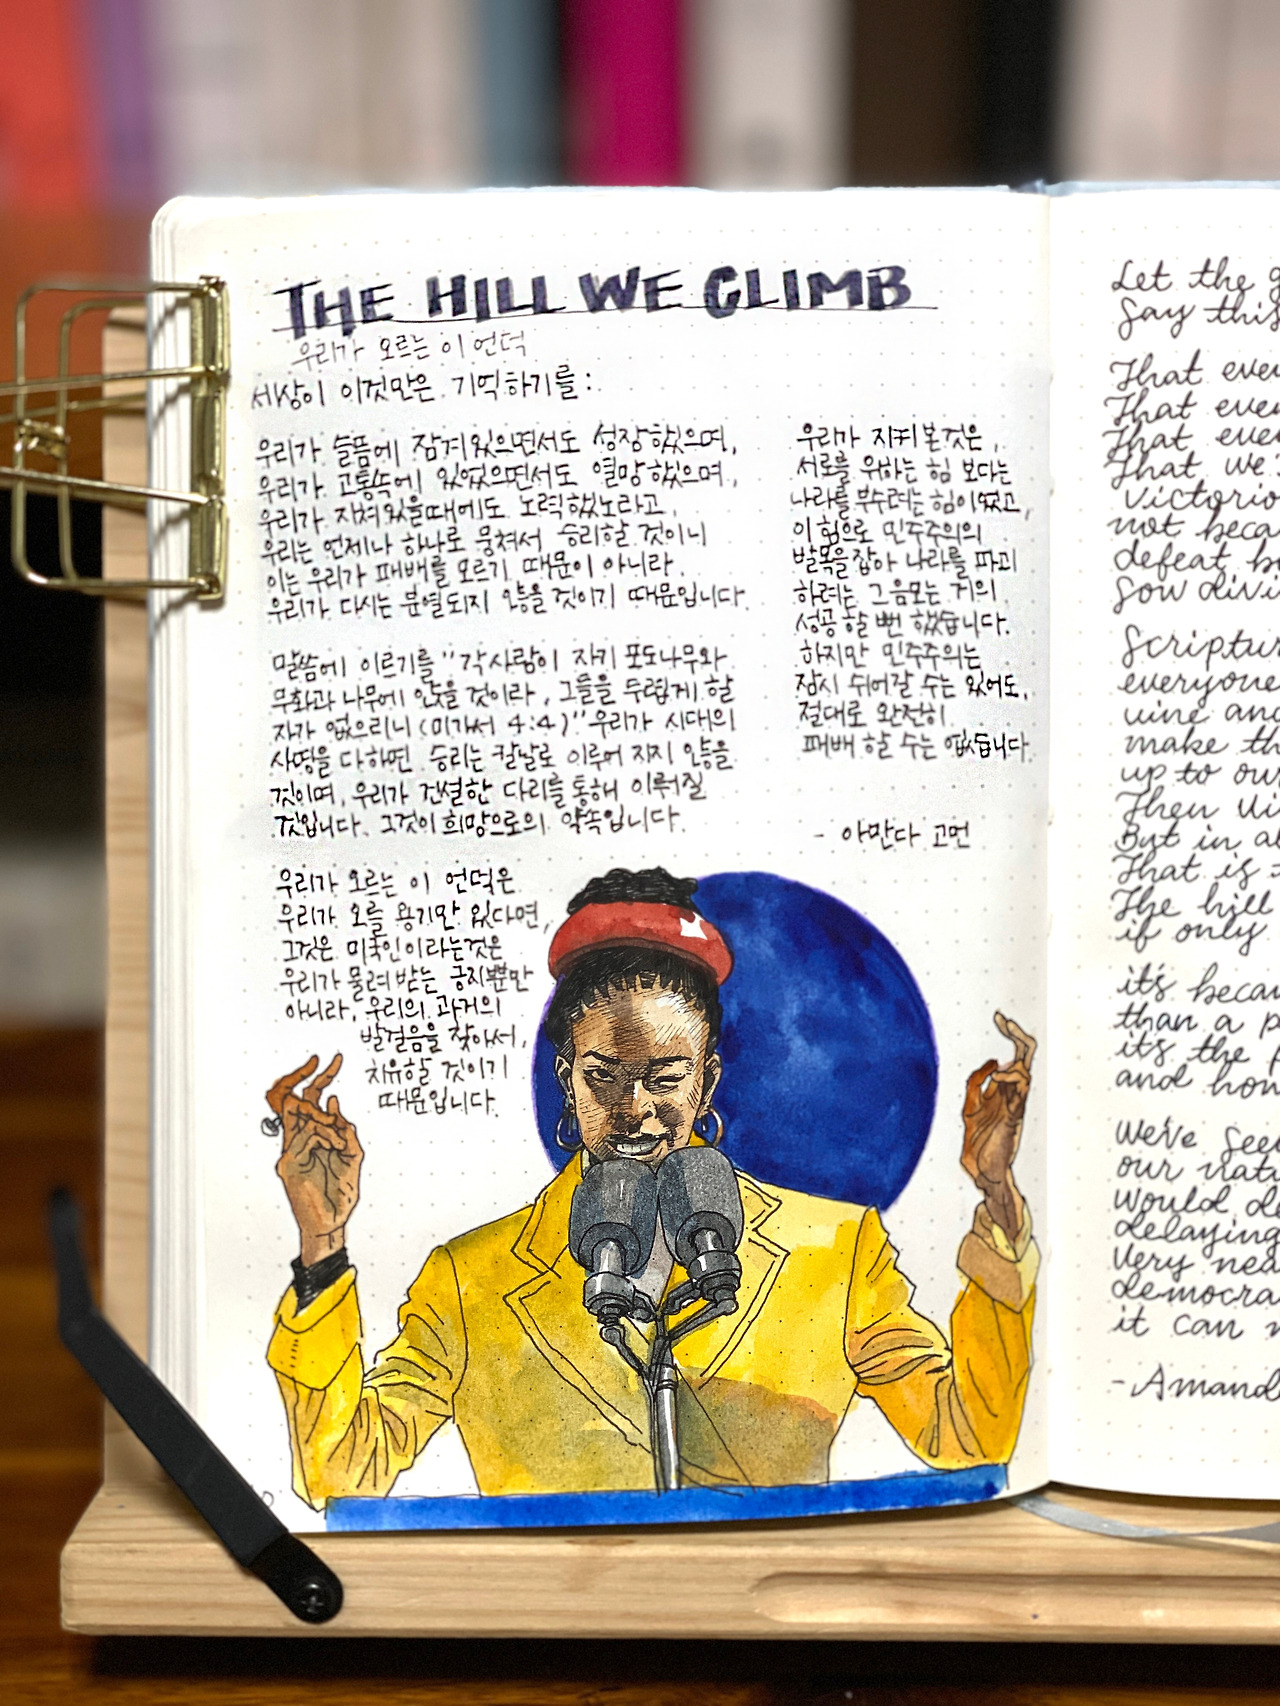 THE HILL WE CLIMB
우리가 오르는 이 언덕
세상이 이것만은 기억하기를:
우리가 슬픔에 잠겨있으면서도 성장했으며,
우리가 고통속에 있었으면서도 열망했으며,
우리가 지쳐있을때에도 노력했노라고,
우리는 언제나 하나로 뭉쳐서 승리할 것이니
이는 우리가 패배를 모르기 때문이 아니라
우리가 다시는 분열되지 않을 것이기 때문입니다.
말씀에 이르기를 "각사람이 자기 포도나무와
무화과 나무에 앉을 것이라, 그들을 두렵게 할
자가 없으리니 (미가서 4:4)" 우리가 시대의
사명을 다하면 승리는 칼날로 이루어 지지 않을
것이며, 우리가 건설한 다리를 통해 이루어질
것입니다. 그것이 희망으로의 약속입니다.
우리가 오르는 이 언덕은
우리가 오를 용기만 있다면,
그것은 미국인이라는것은
우리가 물려받는 긍지뿐만
아니라, 우리의 과거의
발걸음을 찾아서,
치유할 것이기
때문입니다.
우리가 지켜본것은,
서로를 위하는 힘 보다는
나라를 부수려는 힘이였고,
이 힘으로 민주주의의
발목을 잡아 나라를 파괴
하려는 그 음모는 거의
성공 할 뻔 했습니다.
하지만 민주주의는
잠시 쉬어갈 수는 있어도,
절대로 완전히
패배 할 수는 없습니다.
- 아만다 고먼
Let the
Say this
That
That
That
That we
not
defeat
Sow
everyone
vine and
make
up to our
Then
But in
That is
The hill
if only
it's
than a
it's the
and how
We've
our
would
delaying
Very
it can